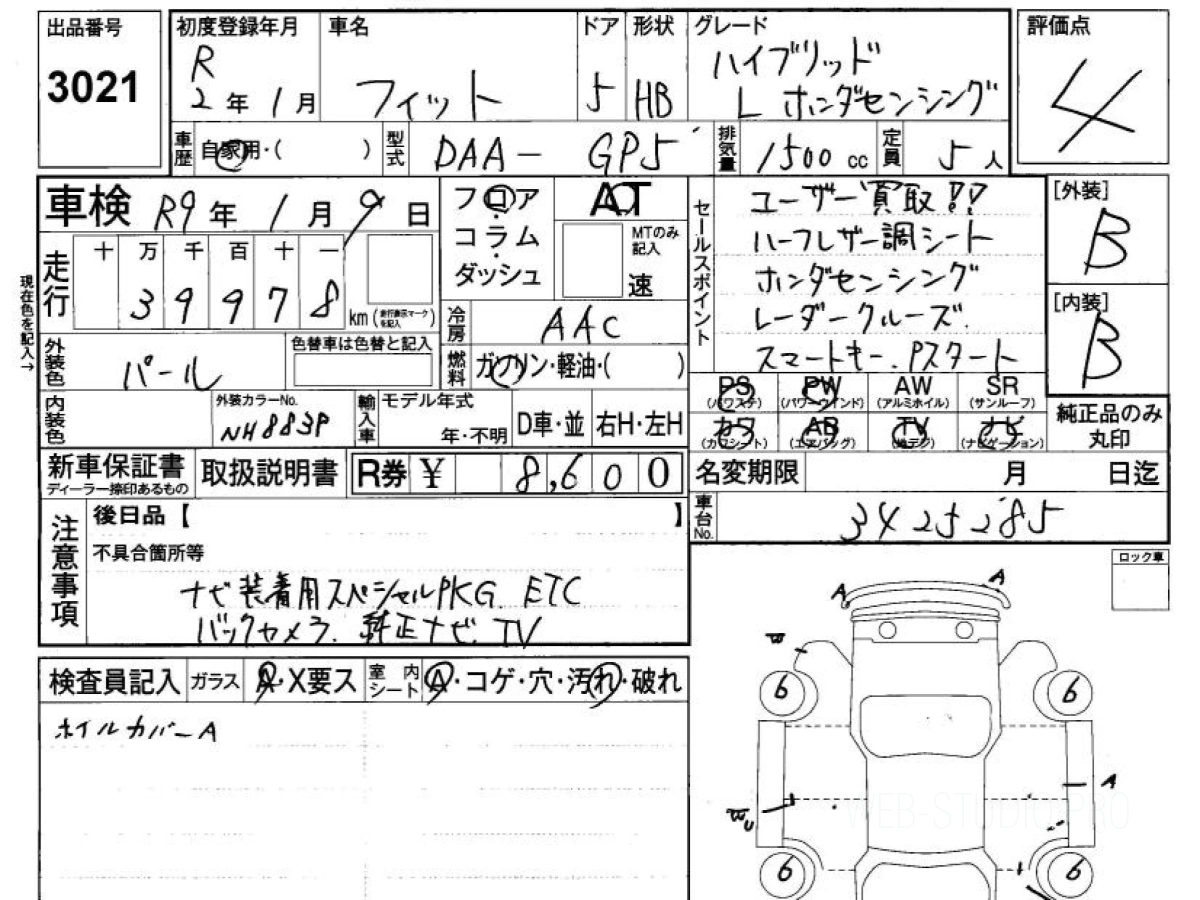 出品番号 3021
初度登録年月 R 2年 1月
車名 フィット
ドア 5
形状 HB
グレード ハイブリッド
L ホンダセンシング
評価点 4
車歴 自家用・( )
型式 DAA- GP5
排気量 1500 cc
定員 5人
車検 R9年 1月 9日
フロア・コラム・ダッシュ
AT
MTのみ記入
速
現在色を記入→
走行 十万千百十一
39978 km (走行表示マークを記入)
冷房 AAC
外装色 パール
色替車は色替と記入
燃料 ガソリン・軽油・( )
内装色
外装カラーNo. NH883P
輸入車 モデル年式 年・不明
D車・並
右H・左H
セールスポイント
ユーザー買取!!
ハーフレザー調シート
ホンダセンシング
レーダークルーズ.
スマートキー.Pスタート
[外装] B
[内装] B
PS (パワステ) PW (パワーウインド) AW (アルミホイル) SR (サンルーフ)
カワ (カワシート) AB (エアバッグ) TV (地デジ) ナビ (ナビゲーション)
純正品のみ丸印
新車保証書 ディーラー捺印あるもの
取扱説明書
R券 ¥ 8,600
名変期限 月 日迄
車台No. 3425285
注意事項
後日品【 】
不具合箇所等
ナビ装着用スペシャルPKG ETC
バックカメラ.純正ナビ.TV
検査員記入 ガラス A・X要ス
室内シート A・コゲ・穴・汚れ・破れ
ホイルカバーA
ロック車
A
A
W
6
6
A
6
6
WEB-STUDIO.PRO